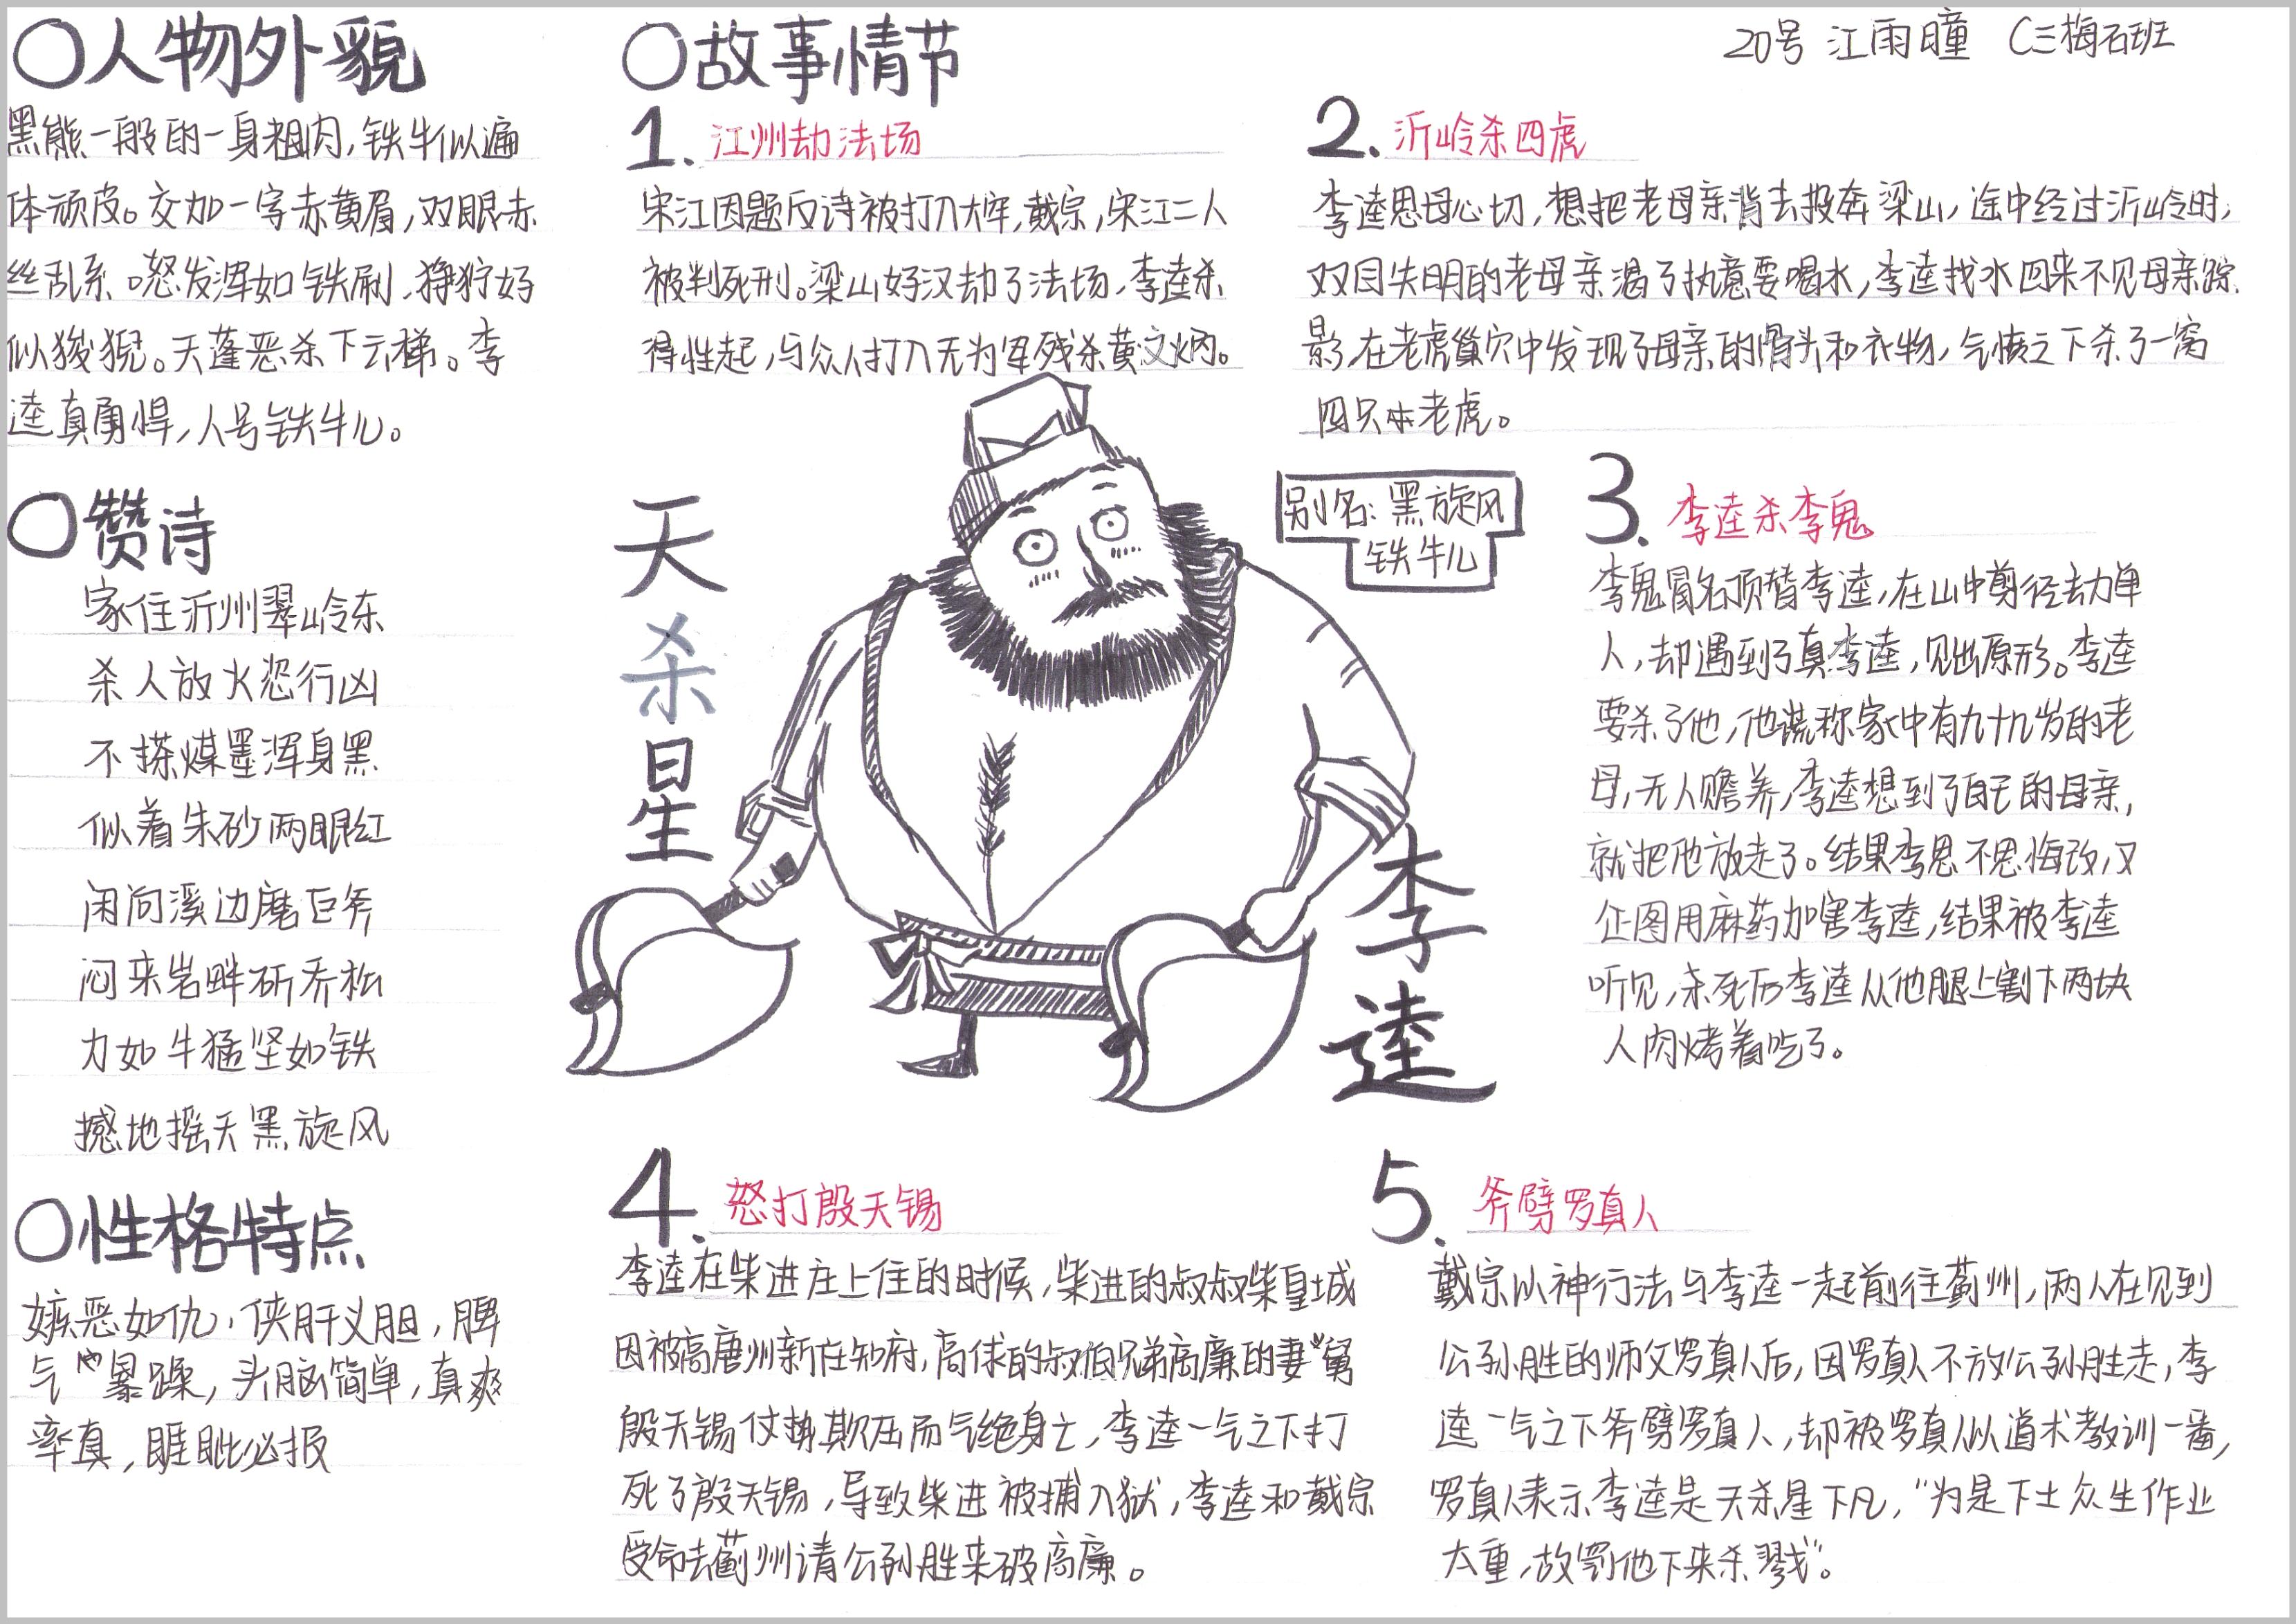 20号 江雨曈 C三梅石班
○人物外貌
黑熊一般的一身粗肉,铁牛似遍
体顽皮。交加一字赤黄眉,双眼赤
丝乱系。怒发浑如铁刷,狰狞好
似狻猊。天蓬恶杀下云梯。李
逵真勇悍,人号铁牛儿。
○赞诗
家住沂州翠岭东
杀人放火恣行凶
不搽煤墨浑身黑
似着朱砂两眼红
闲向溪边磨巨斧
闷来岩畔斫乔松
力如牛猛坚如铁
撼地摇天黑旋风
○性格特点
嫉恶如仇,侠肝义胆,脾
气暴躁,头脑简单,真爽
率真,睚眦必报
○故事情节
1. 江州劫法场
宋江因题反诗被打入大牢,戴宗,宋江二人
被判死刑。梁山好汉劫了法场,李逵杀
得性起,与众人打入无为军残杀黄文炳。
2. 沂岭杀四虎
李逵思母心切,想把老母亲背去投奔梁山,途中经过沂岭时,
双目失明的老母亲渴了执意要喝水,李逵找水回来不见母亲踪
影,在老虎巢穴中发现了母亲的骨头和衣物,气愤之下杀了一窝
四只老虎。
天杀星
别名:黑旋风
铁牛儿
李逵
3. 李逵杀李鬼
李鬼冒名顶替李逵,在山中剪径去力单
人,却遇到了真李逵,见出原形。李逵
要杀了他,他谎称家中有九十九岁的老
母,无人赡养,李逵想到了自己的母亲,
就把他放走了。结果李恩不思悔改,又
企图用麻药加害李逵,结果被李逵
听见,杀死后李逵从他腿上割下两块
人肉烤着吃了。
4. 怒打殷天锡
李逵在柴进庄上住的时候,柴进的叔叔柴皇城
因被高唐州新在知府,高俅的叔伯兄弟高廉的妻舅
殷天锡仗势欺压而气绝身亡,李逵一气之下打
死了殷天锡,导致柴进被捕入狱,李逵和戴宗
受命去蓟州请公孙胜来破高廉。
5. 斧劈罗真人
戴宗以神行法与李逵一起前往蓟州,两人在见到
公孙胜的师父罗真人后,因罗真人不放公孙胜走,李
逵一气之下斧劈罗真人,却被罗真人以道术教训一番,
罗真人表示李逵是天杀星下凡,“为是下土众生作业
太重,故罚他下来杀戮”。